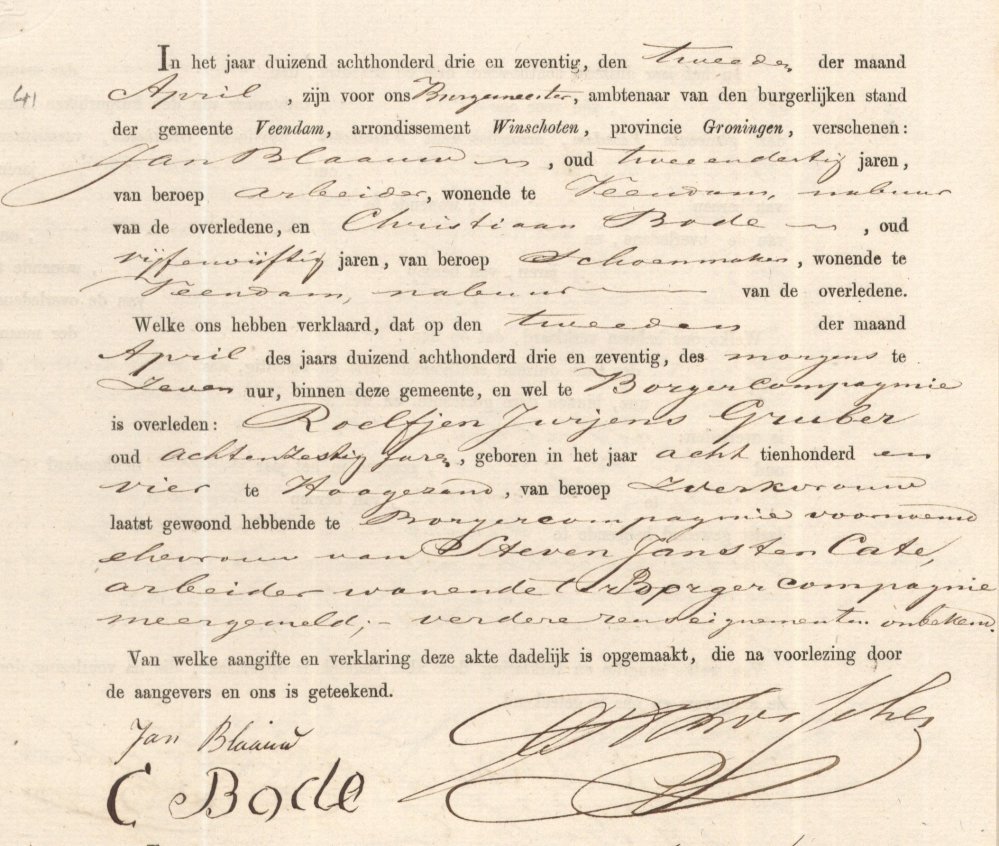 In het jaar duizend achthonderd drie en zeventig, den tweeden der maand
41
April, zijn voor ons Burgemeester, ambtenaar van den burgerlijken stand
der gemeente Veendam, arrondissement Winschoten, provincie Groningen, verschenen:
Jan Blaauw, oud tweeendertig jaren,
van beroep arbeider, wonende te Veendam, nabuur
van de overledene, en Christiaan Bode, oud
vijfenvijftig jaren, van beroep Schoenmaker, wonende te
Veendam, nabuur van de overledene.
Welke ons hebben verklaard, dat op den tweeden der maand
April des jaars duizend achthonderd drie en zeventig, des morgens te
Zeven uur, binnen deze gemeente, en wel te Borgercompagnie
is overleden: Roelfjen Jurjens Gruber
oud achtenzestig jare, geboren in het jaar acht tienhonderd en
vier te Hoogezand, van beroep Werkvrouw
laatst gewoond hebbende te Borgercompagnie voornoemd
ehevrouw van Steven Jans ten Cate,
arbeider wonende te Borgercompagnie
meergemeld; - verdere renseignementen onbekend.
Van welke aangifte en verklaring deze akte dadelijk is opgemaakt, die na voorlezing door
de aangevers en ons is geteekend.
Jan Blaauw
C Bode